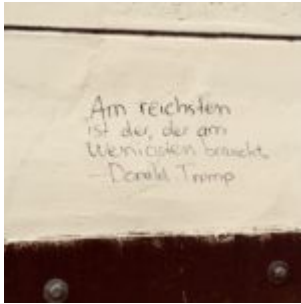 Am reichsten
ist der, der am
Wenigsten braucht.
- Donald Trump